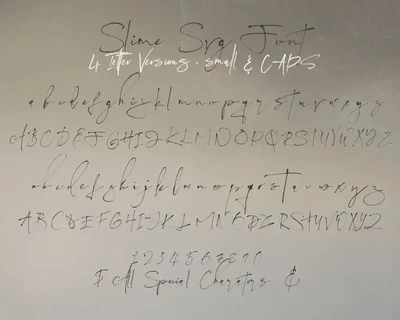 Slime Svg Font
4 letter Versions . small & CAPS
a b c d e f g h i j k l m n o p q r s t u v w x y z
A B C D E F G H I J K L M N O P Q R S T U V W X Y Z
a b c d e f g h i j k l m n o p q r s t u v w x y z
A B C D E F G H I J K L M N O P Q R S T U V W X Y Z
1 2 3 4 5 6 7 8 9 0
All Special Charaters &